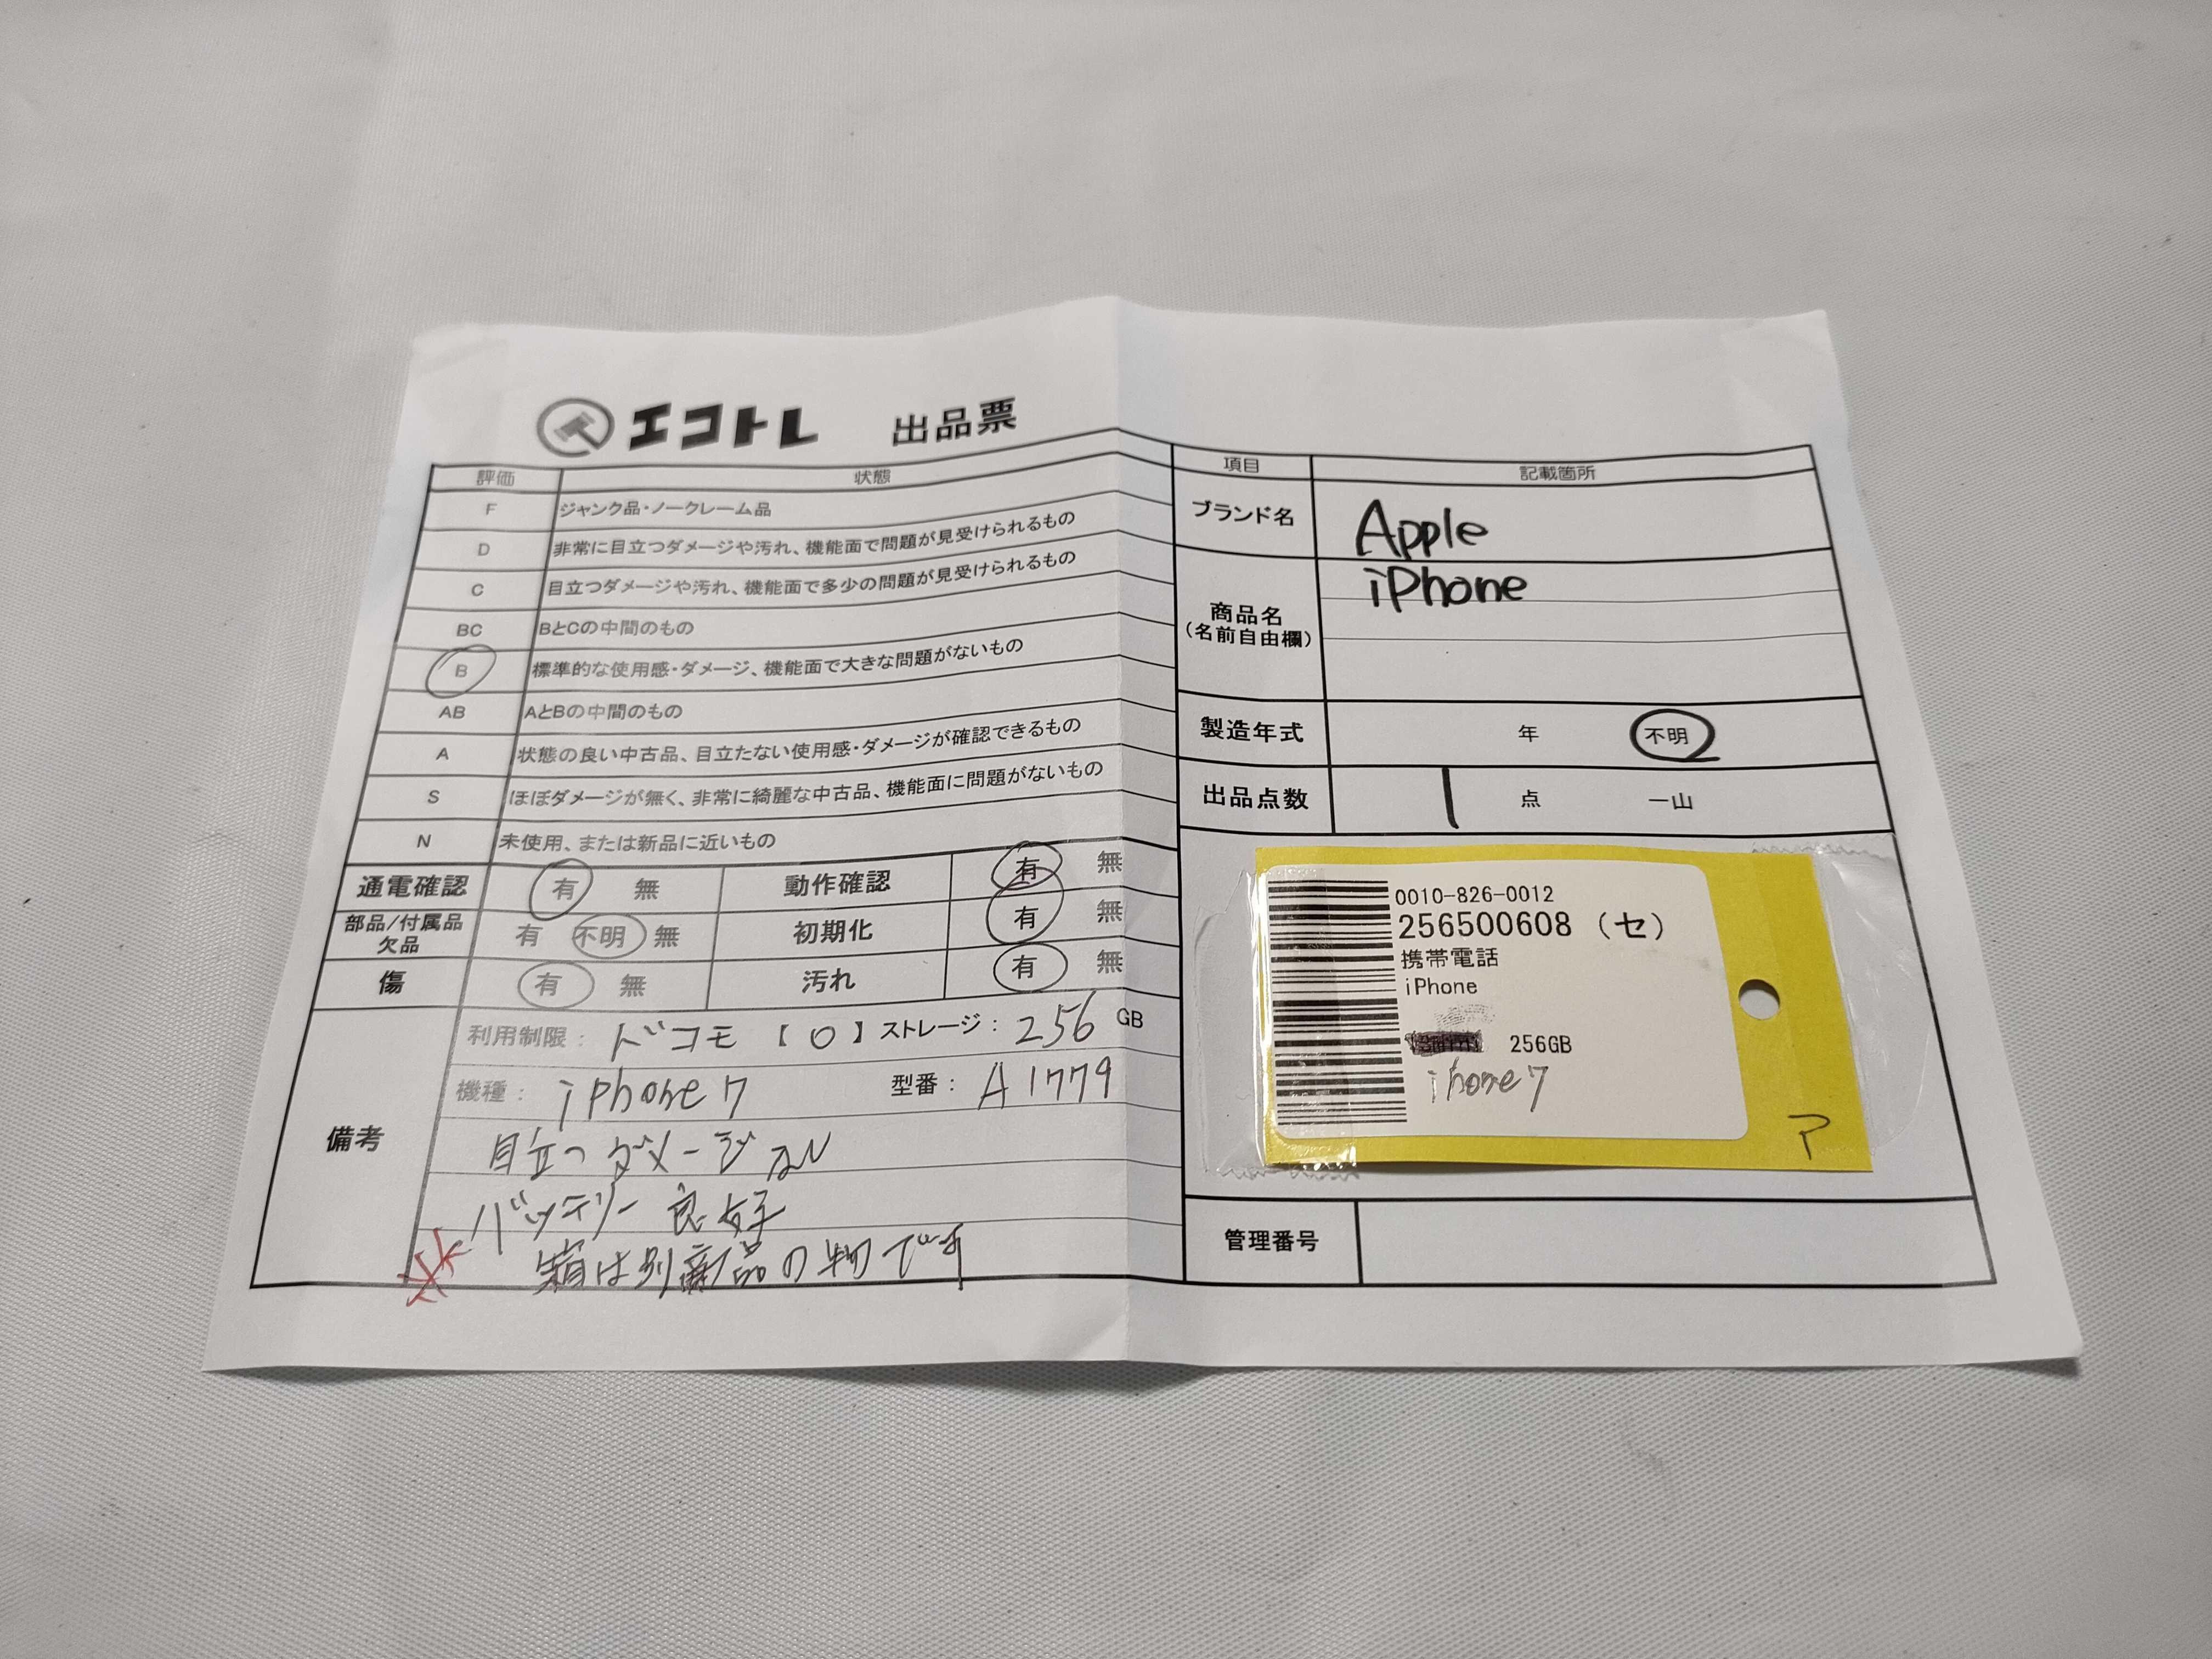 エコトレ 出品票
評価 状態
F ジャンク品・ノークレーム品
D 非常に目立つダメージや汚れ、機能面で問題が見受けられるもの
C 目立つダメージや汚れ、機能面で多少の問題が見受けられるもの
BC BとCの中間のもの
B 標準的な使用感・ダメージ、機能面で大きな問題がないもの
AB AとBの中間のもの
A 状態の良い中古品、目立たない使用感・ダメージが確認できるもの
S ほぼダメージが無く、非常に綺麗な中古品、機能面に問題がないもの
N 未使用、または新品に近いもの
通電確認 有 無 動作確認 有 無
部品/付属品 欠品 有 不明 無 初期化 有 無
傷 有 無 汚れ 有 無
備考
利用制限: ドコモ 【 ○ 】 ストレージ: 256 GB
機種: iphone7 型番: A1779
目立つダメージ
バッテリー 良好
箱は別商品の物です
項目 記載箇所
ブランド名 Apple
商品名 iPhone
(名前自由欄)
製造年式 年 不明
出品点数 1 点 一山
0010-826-0012
256500608 (セ)
携帯電話
iPhone
256GB
ihone7
ア
管理番号